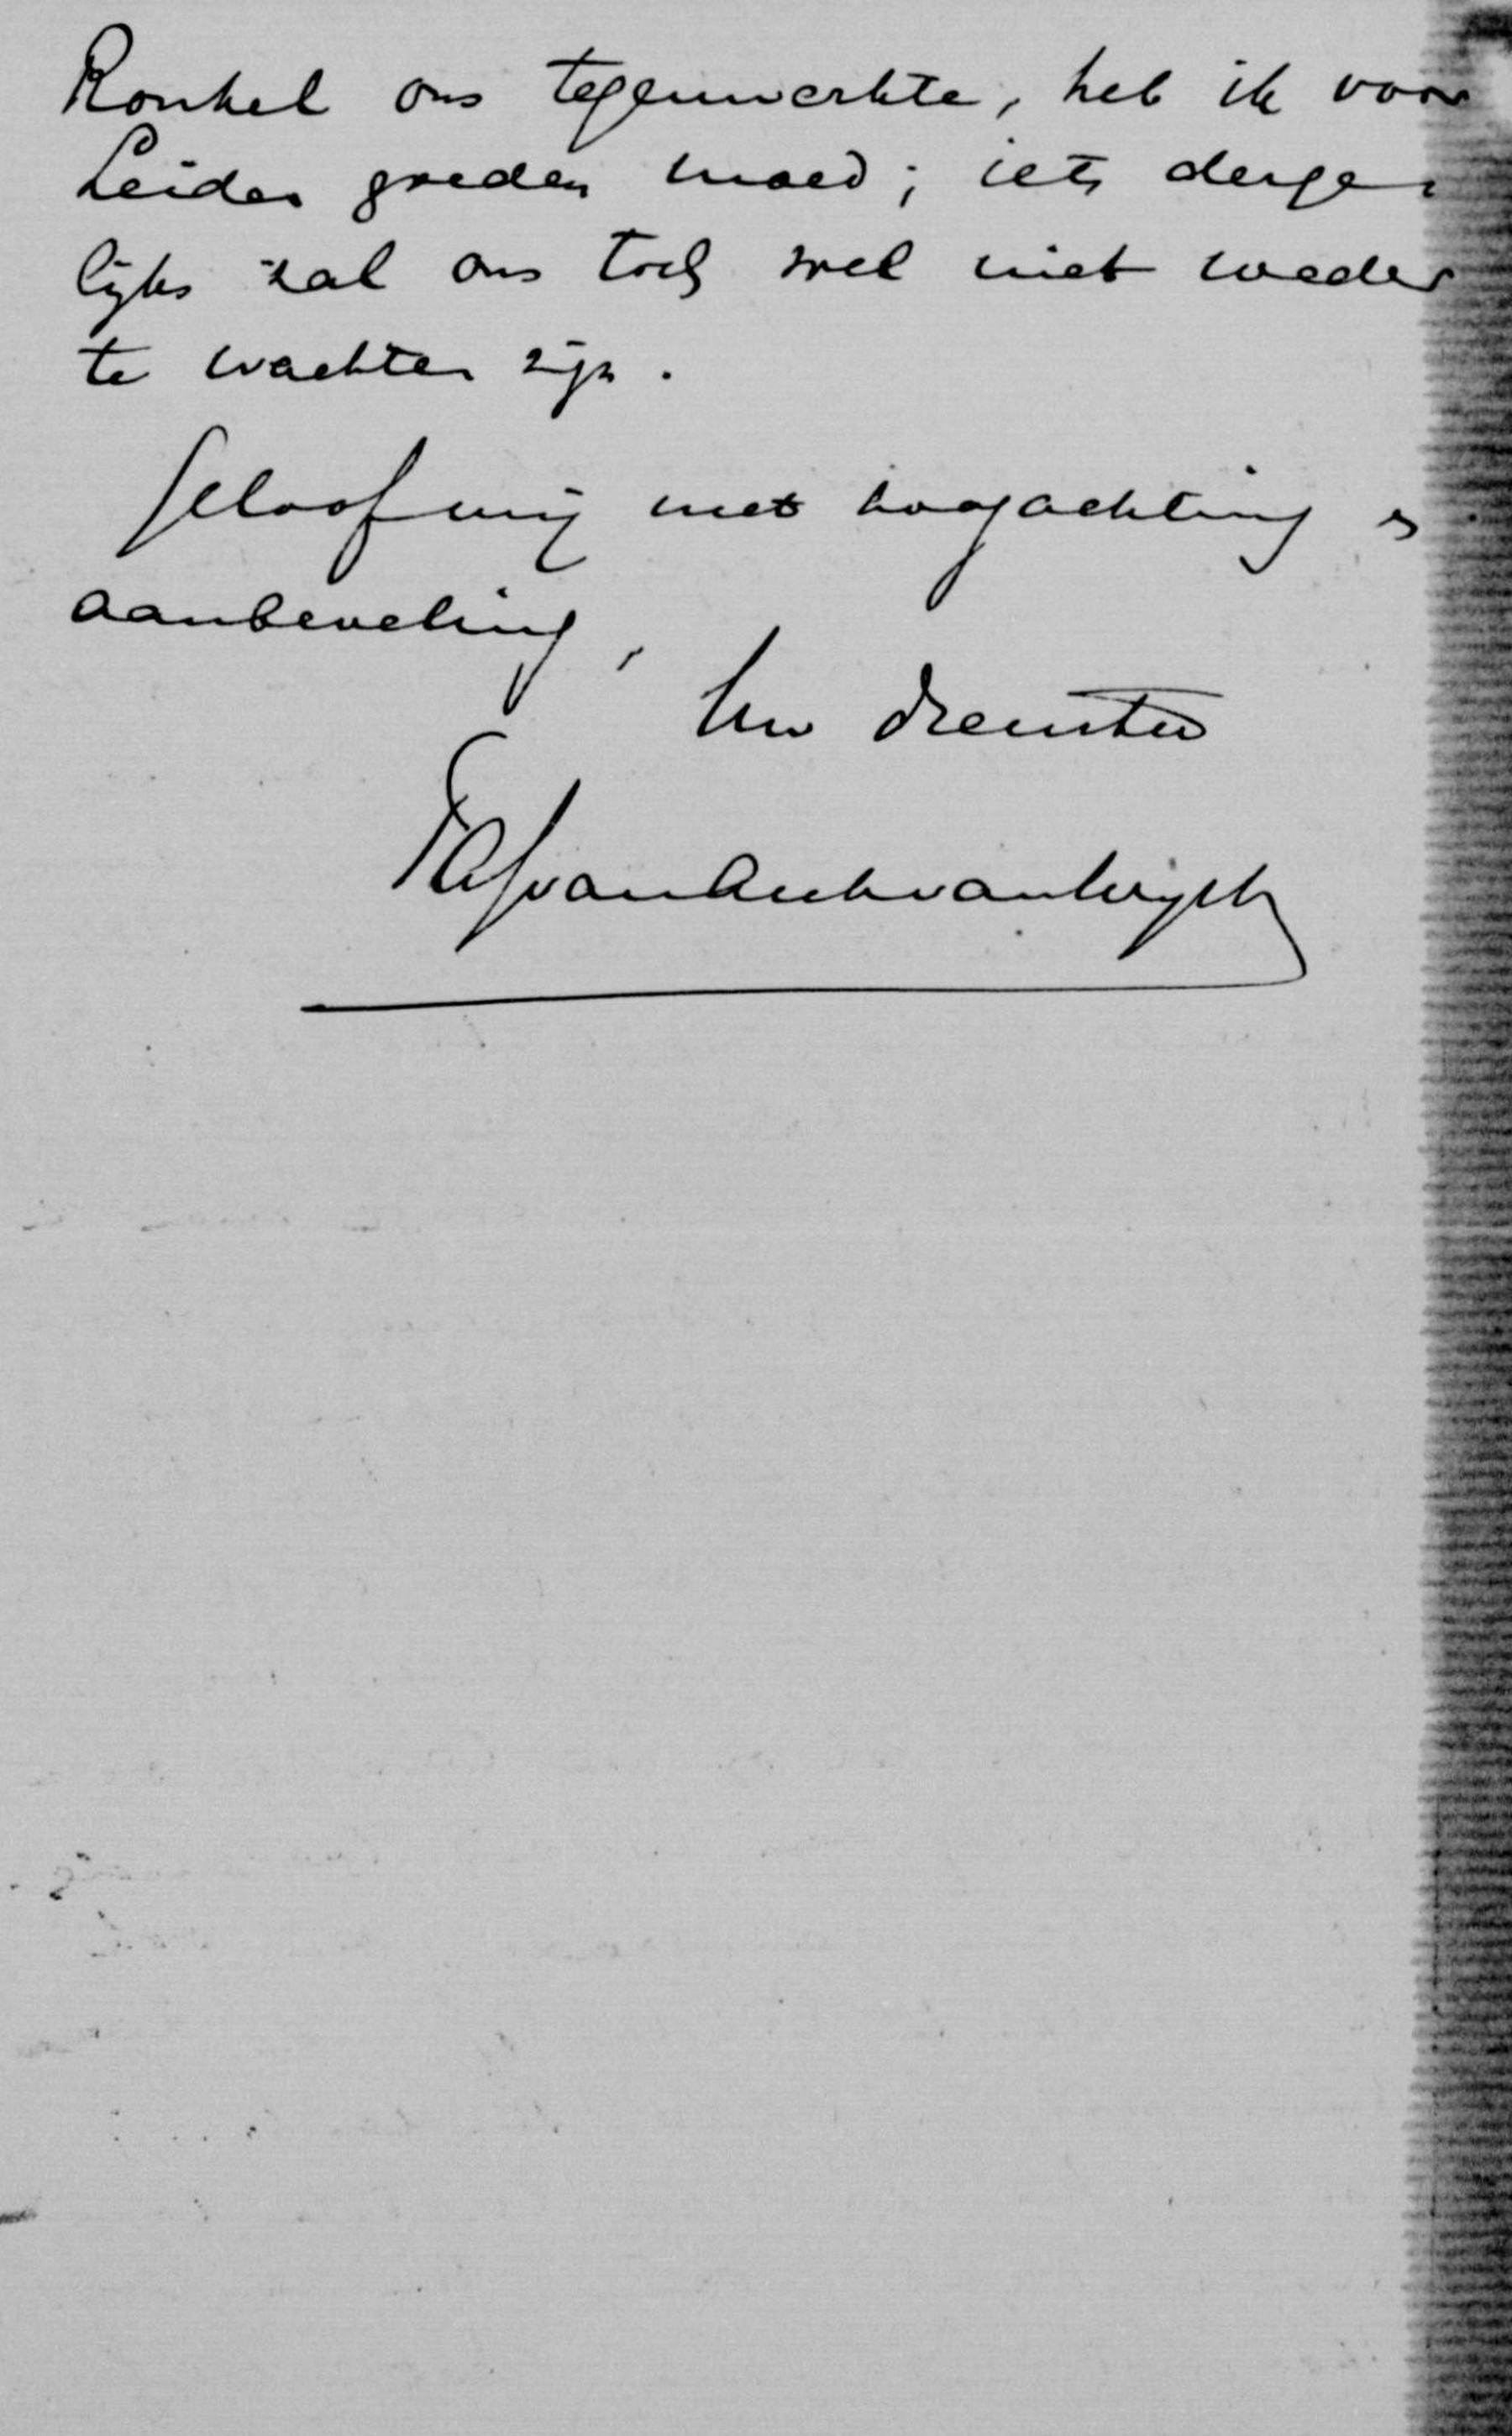 Ronkel ons tegenwerkte, heb ik voor
Leiden goeden moed; iets derge-
lijks zal ons toch wel niet weder
te wachten zijn.
Geloof mij met hoogachting en
aanbeveling,
Uw dienstw